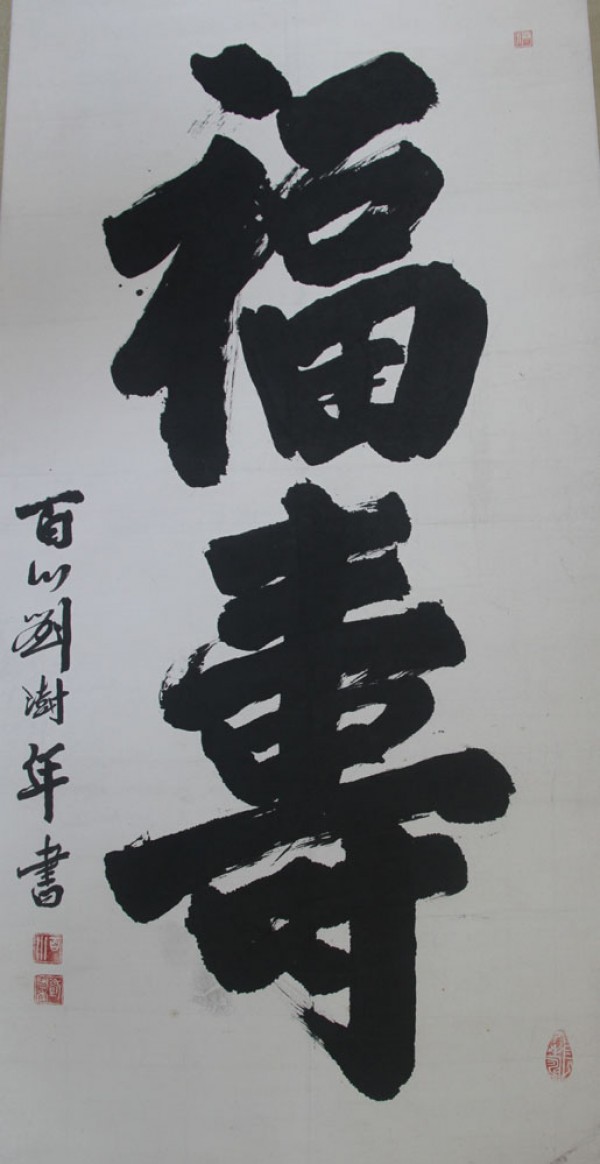 福壽
百川劉澍年書